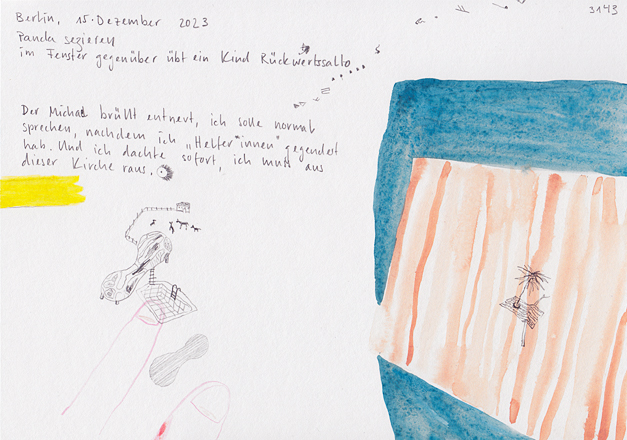 Berlin, 15. Dezember 2023
3143
Panda sezieren
im Fenster gegenüber übt ein Kind Rückwertssalto
Der Michael brüllt entnervt, ich solle normal
sprechen, nachdem ich „Helfer*innen" gegendert
hab. Und ich dachte sofort, ich muss aus
dieser Kirche raus.